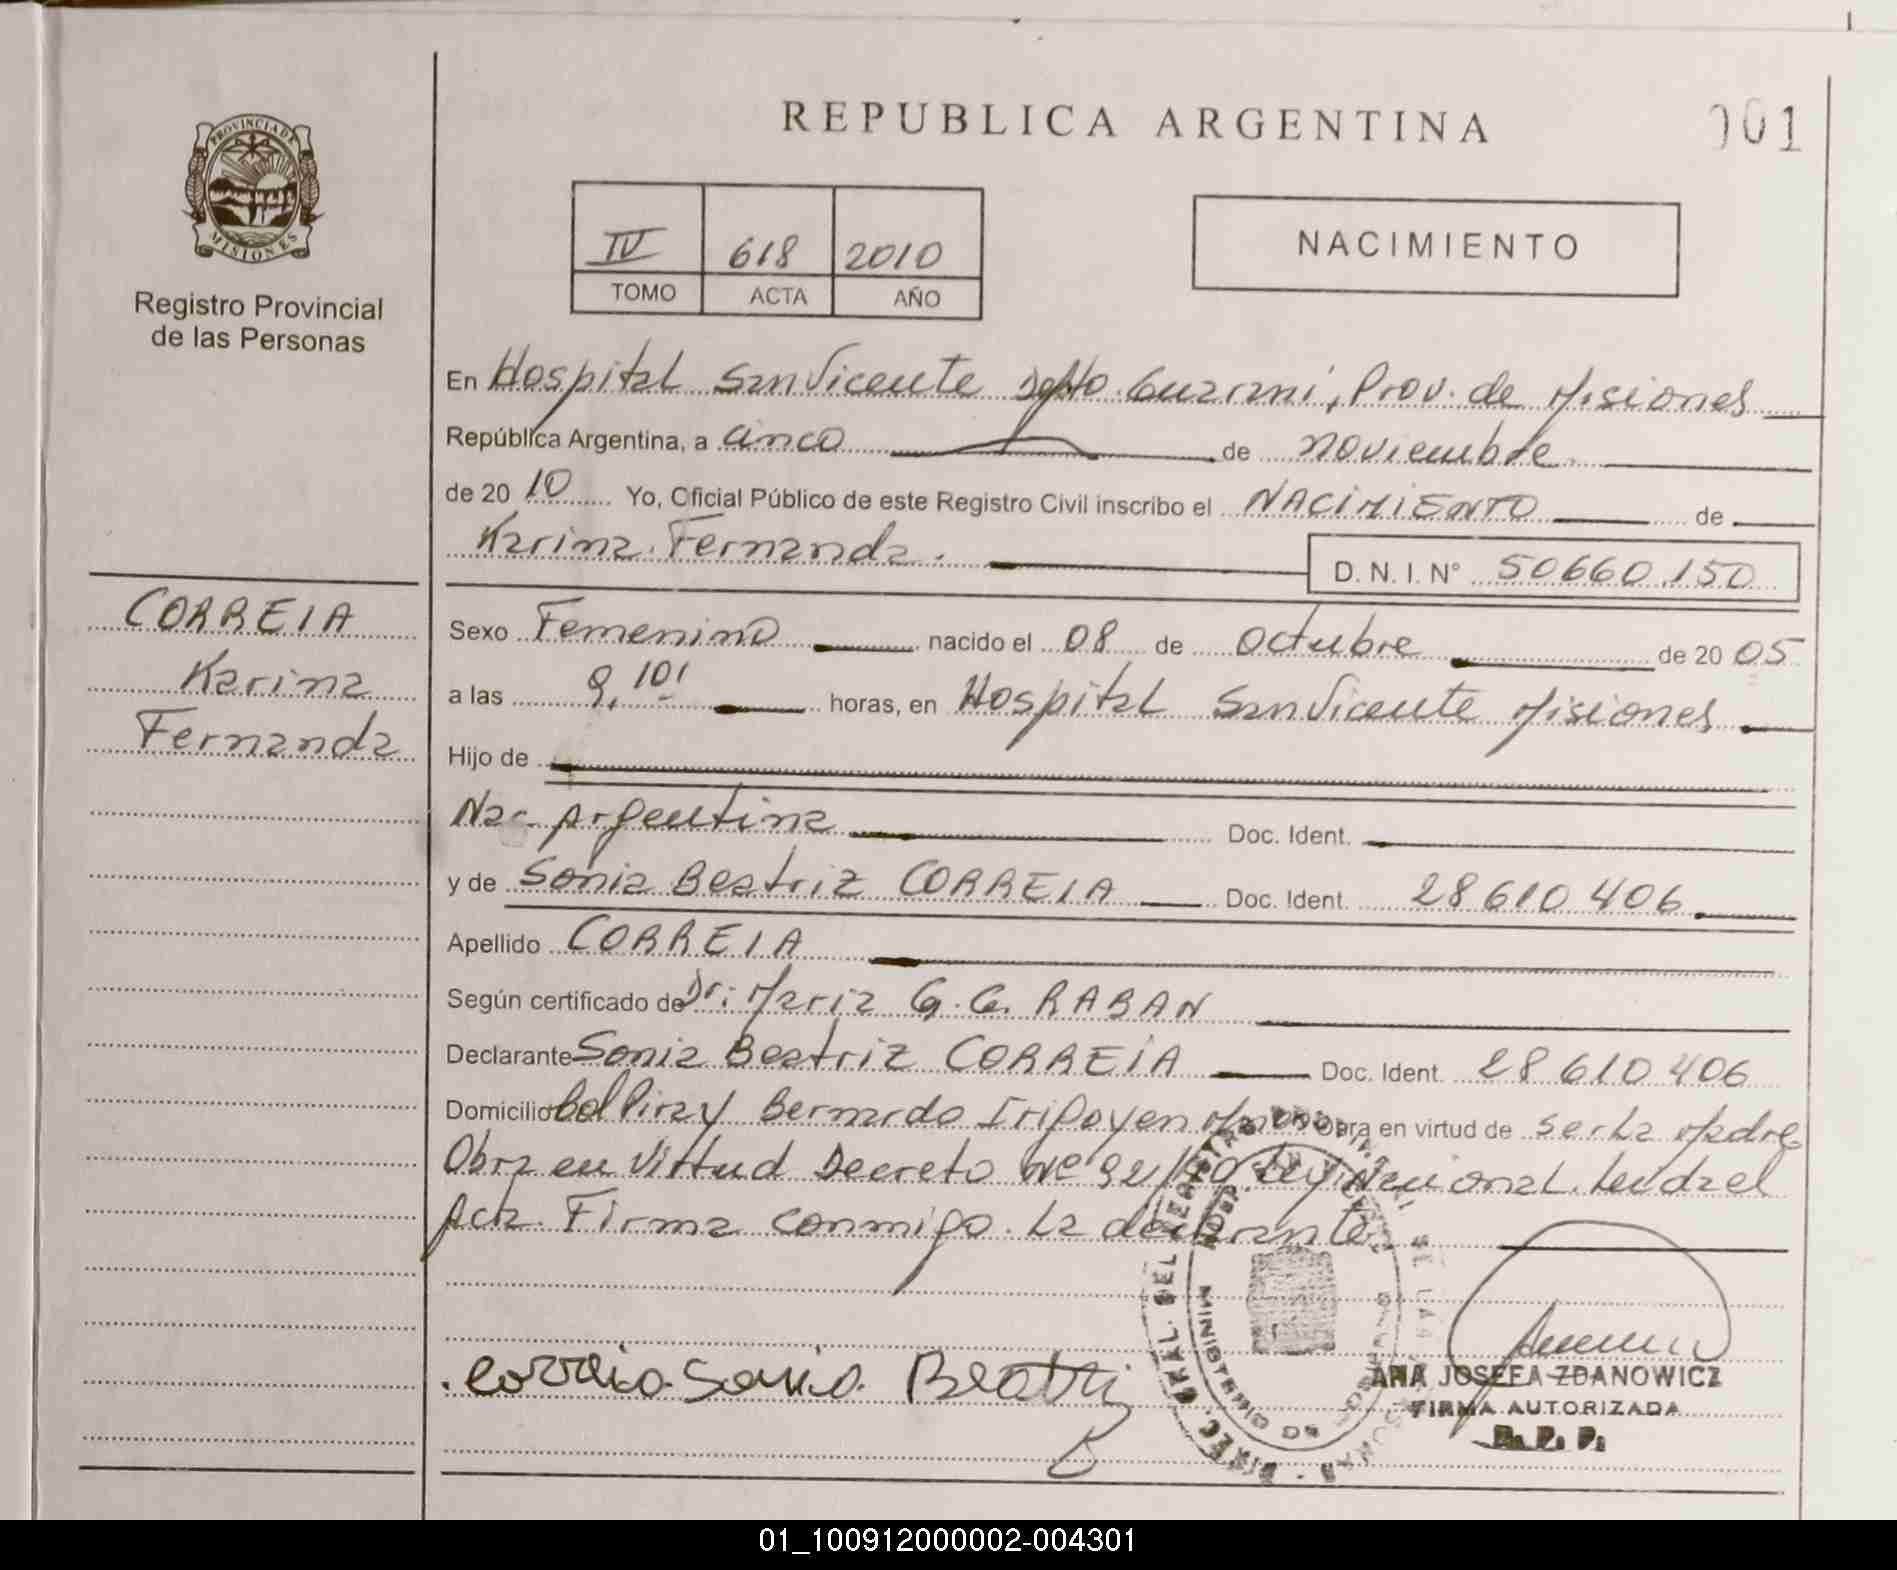 REPUBLICA ARGENTINA
001
PROVINCIA DE
MISIONES
Registro Provincial
de las Personas
IV 618 2010
TOMO ACTA AÑO
NACIMIENTO
En Hospital San Vicente Dpto. Guaraní, Prov. de Misiones
República Argentina, a cinco de noviembre
de 2010 Yo, Oficial Público de este Registro Civil inscribo el NACIMIENTO de
Karina Fernanda.
D. N. I. N° 50660.150
CORREIA
Karina
Fernanda
Sexo Femenino nacido el 08 de octubre de 2005
a las 9,10' horas, en Hospital San Vicente Misiones
Hijo de
Nac. Argentina Doc. Ident.
y de Sonia Beatriz CORREIA Doc. Ident. 28610406
Apellido CORREIA
Según certificado de Dr: Maria G. G. RABAN
Declarante Sonia Beatriz CORREIA Doc. Ident. 28610406
Domicilio Piray Bernardo Irigoyen Obra en virtud de ser la Madre
Obra en Virtud Decreto Nº Ley Nacional. Leída el
Acta. Firma conmigo. La declarante
Correia Sonia Beatriz
ANA JOSEFA ZDANOWICZ
FIRMA AUTORIZADA
R. P. P.
01_100912000002-004301